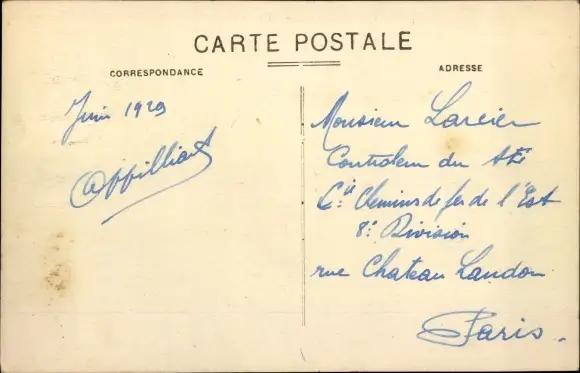 CARTE POSTALE
CORRESPONDANCE
ADRESSE
Juin 1929
Monsieur Larcier
Controleur du
Cie Chemins de fer de l'Est
8e Division
rue Chateau Landon
Paris.